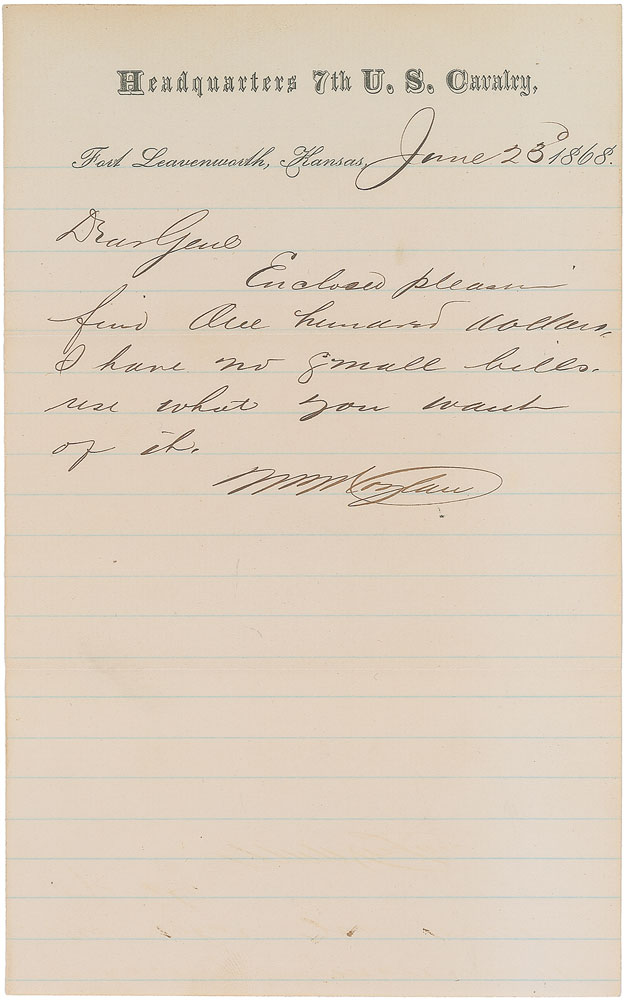 Headquarters 7th U. S. Cavalry,
Fort Leavenworth, Kansas, June 23d 1868.
Dear Genl
Enclosed please
find One hundred dollars.
I have no small bills.
use what you want
of it.